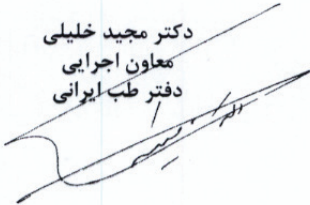 دکتر مجید خلیلی
معاون اجرایی
دفتر طب ایرانی